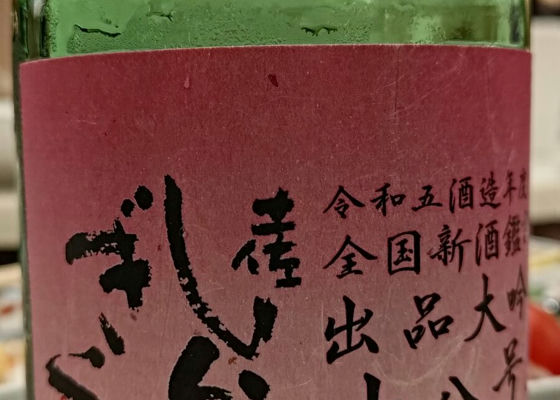 令和五酒造年度
全国新酒鑑
出品大吟
号
土佐
しら
ぎ